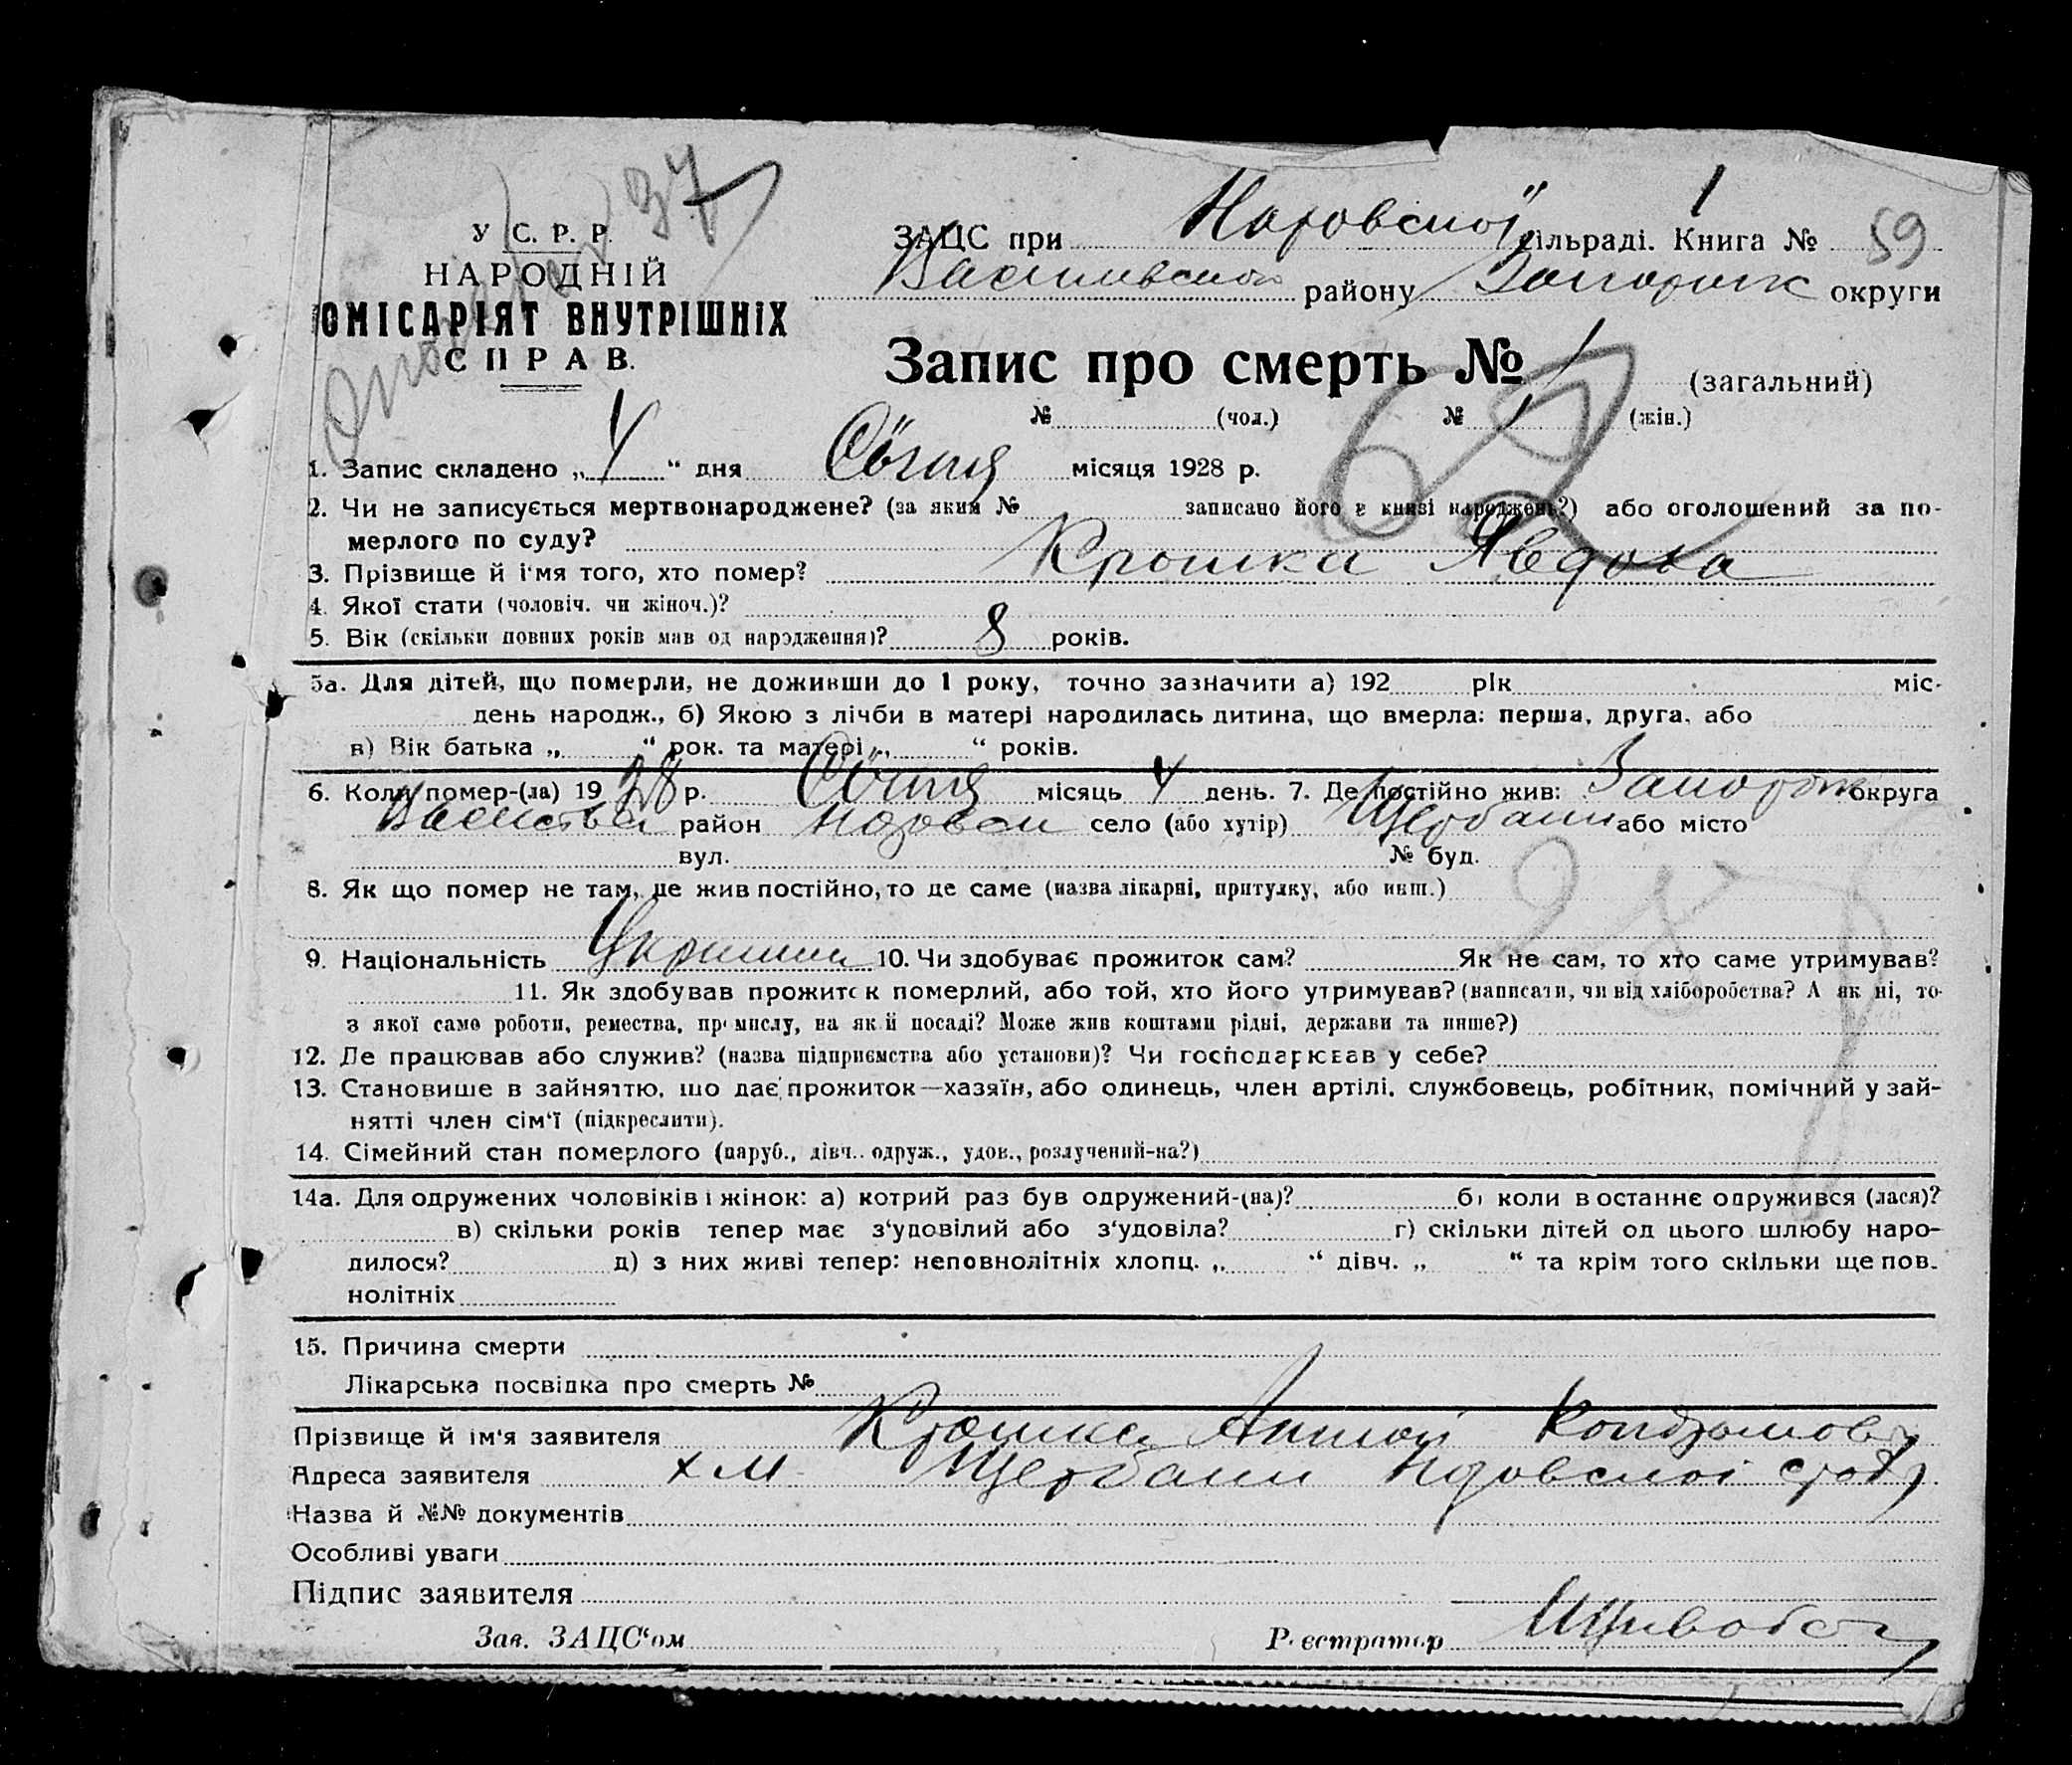 37
У. С. Р. Р.
НАРОДНІЙ
ОМІСАРІЯТ ВНУТРІШНІХ
СПРАВ.
1
ЗАЦС при сільраді. Книга № 59
району округи
Запис про смерть № 1 (загальний)
62
№ (чол.) № 1 (жін.)
1. Запис складено „ 4 “ дня Січня місяця 1928 р.
2. Чи не записується мертвонароджене? (за яким № записано його в книзі народжень?) або оголошений за по-
мерлого по суду?
3. Прізвище й і'мя того, хто помер? Крошка Явдоха
4. Якої стати (чоловіч. чи жіноч.)?
5. Вік (скільки повних років мав од народження)? 8 років.
5а. Для дітей, що померли, не доживши до 1 року, точно зазначити а) 192 рік міс.
день народж., б) Якою з лічби в матері народилась дитина, що вмерла: перша, друга, або
в) Вік батька „ “ рок. та матері „ “ років.
6. Коли помер-(ла) 19 28 р. Січня місяць 4 день. 7. Де постійно жив: Запоріж округа
район село (або хутір) Щербаки або місто
вул. № буд.
8. Як що помер не там, де жив постійно, то де саме (назва лікарні, притулку, або инш.)
9. Національність 10. Чи здобуває прожиток сам? Як не сам, то хто саме утримував?
11. Як здобував прожиток померлий, або той, хто його утримував? (написати, чи від хліборобства? А як ні, то
з якої саме роботи, ремества, промислу, на якій посаді? Може жив коштами рідні, держави та инше?)
12. Де працював або служив? (назва підприємства або установи)? Чи господарював у себе?
13. Становище в зайняттю, що дає прожиток—хазяїн, або одинець, член артілі, службовець, робітник, помічний у зай-
нятті член сім'ї (підкреслити).
14. Сімейний стан померлого (паруб., дівч.. одруж., удов., розлучений-на?)
14а. Для одружених чоловіків і жінок: а) котрий раз був одружений-(на)? б) коли в останнє одружився (лася)?
в) скільки років тепер має з'удовілий або з'удовіла? г) скільки дітей од цього шлюбу наро-
дилося? д) з них живі тепер: неповнолітніх хлопц. „ “ дівч. „ “ та крім того скільки ще пов.
нолітніх
15. Причина смерти
Лікарська посвідка про смерть №
Прізвище й ім'я заявителя Крошка
Адреса заявителя Щербаки
Назва й №№ документів
Особливі уваги
Підпис заявителя
Зав. ЗАЦС'ом Реєстратор